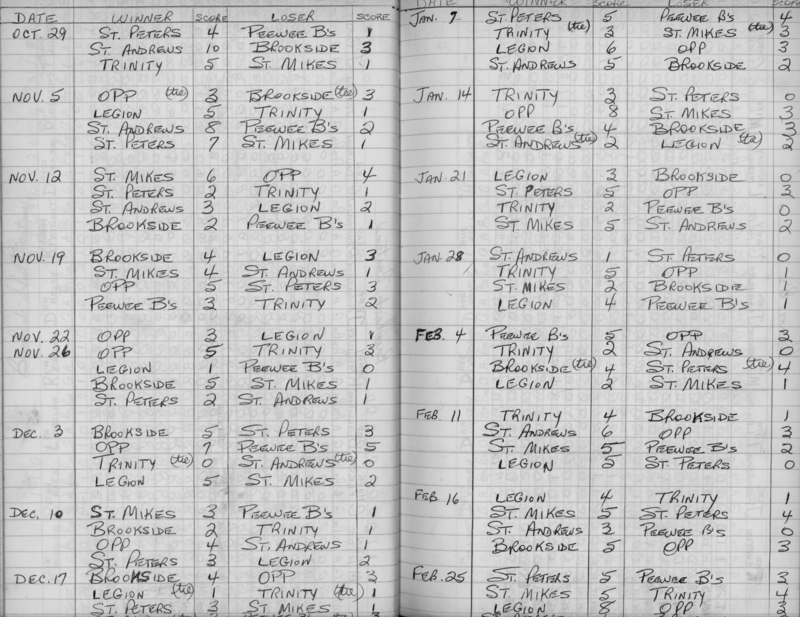 DATE WINNER SCORE LOSER SCORE
OCT. 29 ST. PETERS 4 PEEWEE B's 1
ST. ANDREWS 10 BROOKSIDE 3
TRINITY 5 ST. MIKES 1
NOV. 5 OPP (tie) 3 BROOKSIDE (tie) 3
LEGION 5 TRINITY 1
ST. ANDREWS 8 PEEWEE B's 2
ST. PETERS 7 ST. MIKES 1
NOV. 12 ST. MIKES 6 OPP 4
ST. PETERS 2 TRINITY 1
ST. ANDREWS 3 LEGION 2
BROOKSIDE 2 PEEWEE B's 1
NOV. 19 BROOKSIDE 4 LEGION 3
ST. MIKES 4 ST. ANDREWS 1
OPP 5 ST. PETERS 3
PEEWEE B's 3 TRINITY 2
NOV. 22 OPP 3 LEGION 1
NOV. 26 OPP 5 TRINITY 3
LEGION 1 PEEWEE B's 0
BROOKSIDE 5 ST. MIKES 1
ST. PETERS 2 ST. ANDREWS 1
DEC. 3 BROOKSIDE 5 ST. PETERS 3
OPP 7 PEEWEE B's 5
TRINITY (tie) 0 ST. ANDREWS (tie) 0
LEGION 5 ST. MIKES 2
DEC. 10 ST. MIKES 3 PEEWEE B's 1
BROOKSIDE 2 TRINITY 1
OPP 4 ST. ANDREWS 1
ST. PETERS 3 LEGION 2
DEC. 17 BROOKSIDE 4 OPP 3
LEGION (tie) 1 TRINITY (tie) 1
ST. PETERS 3 ST. MIKES 1
DATE WINNER SCORE LOSER SCORE
JAN. 7 ST. PETERS 5 PEEWEE B's 4
TRINITY (tie) 3 ST. MIKES (tie) 3
LEGION 6 OPP 3
ST. ANDREWS 5 BROOKSIDE 2
JAN. 14 TRINITY 3 ST. PETERS 0
OPP 8 ST. MIKES 3
PEEWEE B's 4 BROOKSIDE 3
ST. ANDREWS (tie) 2 LEGION (tie) 2
JAN. 21 LEGION 3 BROOKSIDE 0
ST. PETERS 5 OPP 3
TRINITY 2 PEEWEE B's 0
ST. MIKES 5 ST. ANDREWS 2
JAN. 28 ST. ANDREWS 1 ST. PETERS 0
TRINITY 5 OPP 1
ST. MIKES 2 BROOKSIDE 1
LEGION 4 PEEWEE B's 1
FEB. 4 PEEWEE B's 5 OPP 3
TRINITY 2 ST. ANDREWS 0
BROOKSIDE (tie) 4 ST. PETERS (tie) 4
LEGION 2 ST. MIKES 1
FEB. 11 TRINITY 4 BROOKSIDE 1
ST. ANDREWS 6 OPP 3
ST. MIKES 5 PEEWEE B's 2
LEGION 5 ST. PETERS 0
FEB 16 LEGION 4 TRINITY 1
ST. MIKES 5 ST. PETERS 4
ST. ANDREWS 3 PEEWEE B's 0
BROOKSIDE 5 OPP 3
FEB. 25 ST. PETERS 5 PEEWEE B's 3
ST. MIKES 5 TRINITY 4
LEGION 8 OPP 3